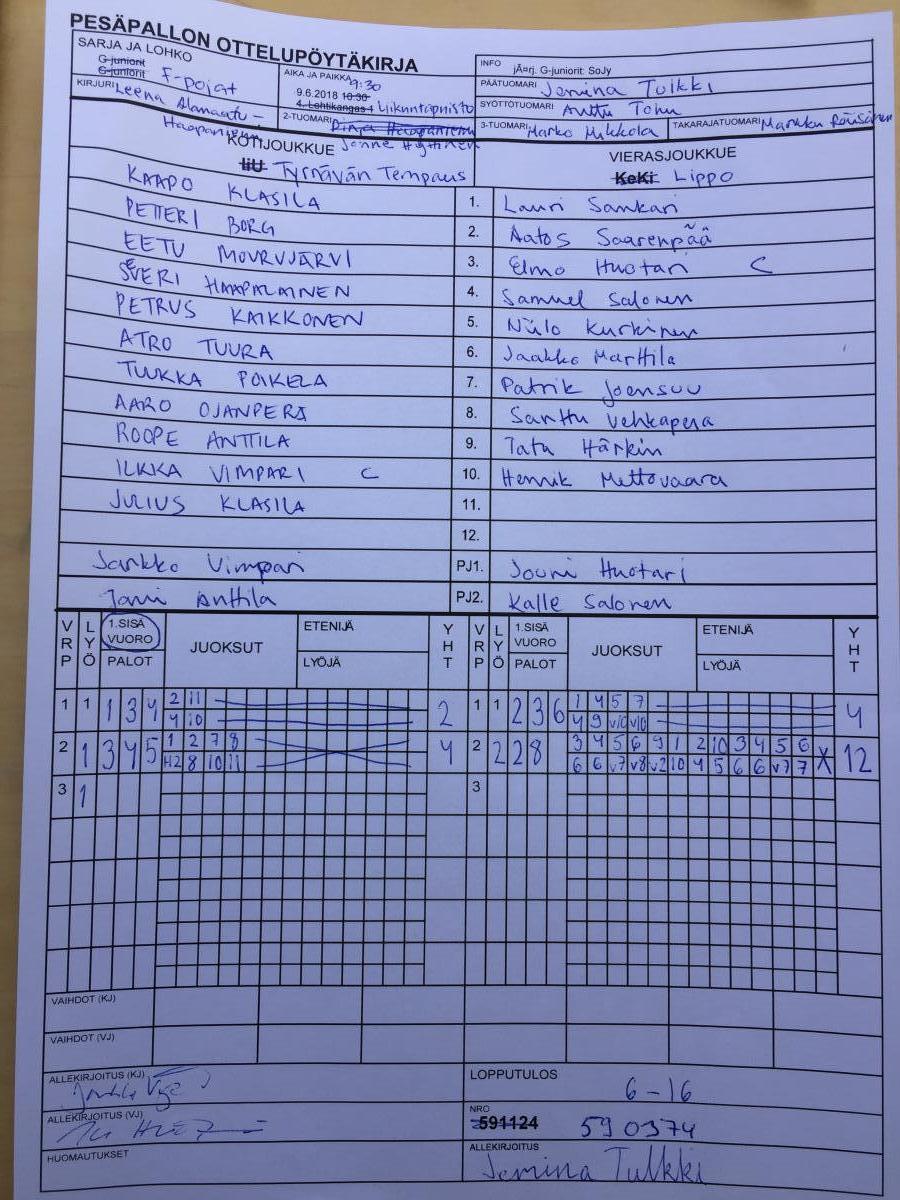 PESÄPALLON OTTELUPÖYTÄKIRJA
SARJA JA LOHKO
G-juniorit
G-juniorit F-pojat
AIKA JA PAIKKA 9:30
9.6.2018 10:30
4. Lohtikangas 1 Liikuntapuisto
INFO jÃ¤rj. G-juniorit: SoJy
PÄÄTUOMARI Jemina Tulkki
SYÖTTÖTUOMARI Anttu
KIRJURI Leena Alamaatu - Haapaniemi
2-TUOMARI Pinja Haapaniemi
Janne Hyttinen
3-TUOMARI Marko Mikkola TAKARAJATUOMARI Markku Räisänen
KOTIJOUKKUE
IiU Tyrnävän Tempaus
VIERASJOUKKUE
KeKi Lippo
KAAPO KLASILA 1. Lauri Sankari
PETTERI BORG 2. Aatos Saarenpää
EETU MOURUJÄRVI 3. Elmo Huotari C
SVERI HAAPALAINEN 4. Samuel Salonen
PETRUS KAIKKONEN 5. Niilo Kurkinen
ATRO TUURA 6. Jaakko Marttila
TUUKKA POIKELA 7. Patrik Joensuu
AARO OJANPERÄ 8. Santtu Vehkaperä
ROOPE ANTTILA 9. Tatu Härkin
ILKKA VIMPARI C 10. Henrik Mettovaara
JULIUS KLASILA 11.
12.
Jarkko Vimpari PJ1. Jouni Huotari
Jani Anttila PJ2. Kalle Salonen
VRP LYÖ 1.SISÄ VUORO PALOT JUOKSUT ETENIJÄ LYÖJÄ YHT VRP LYÖ 1.SISÄ VUORO PALOT JUOKSUT ETENIJÄ LYÖJÄ YHT
1 1 1 3 4 2 11 2 1 1 2 3 6 1 4 5 7 4
4 10 4 9 V10 V10
2 1 3 4 5 1 2 7 8 4 2 2 2 8 3 4 5 6 9 1 2 10 3 4 5 6 X 12
H2 8 10 11 6 6 V7 V8 V2 10 4 5 6 6 V7 7
3 1 3
VAIHDOT (KJ)
VAIHDOT (VJ)
ALLEKIRJOITUS (KJ)
LOPPUTULOS
6-16
ALLEKIRJOITUS (VJ)
NRO
591124 590374
HUOMAUTUKSET
ALLEKIRJOITUS
Jemina Tulkki